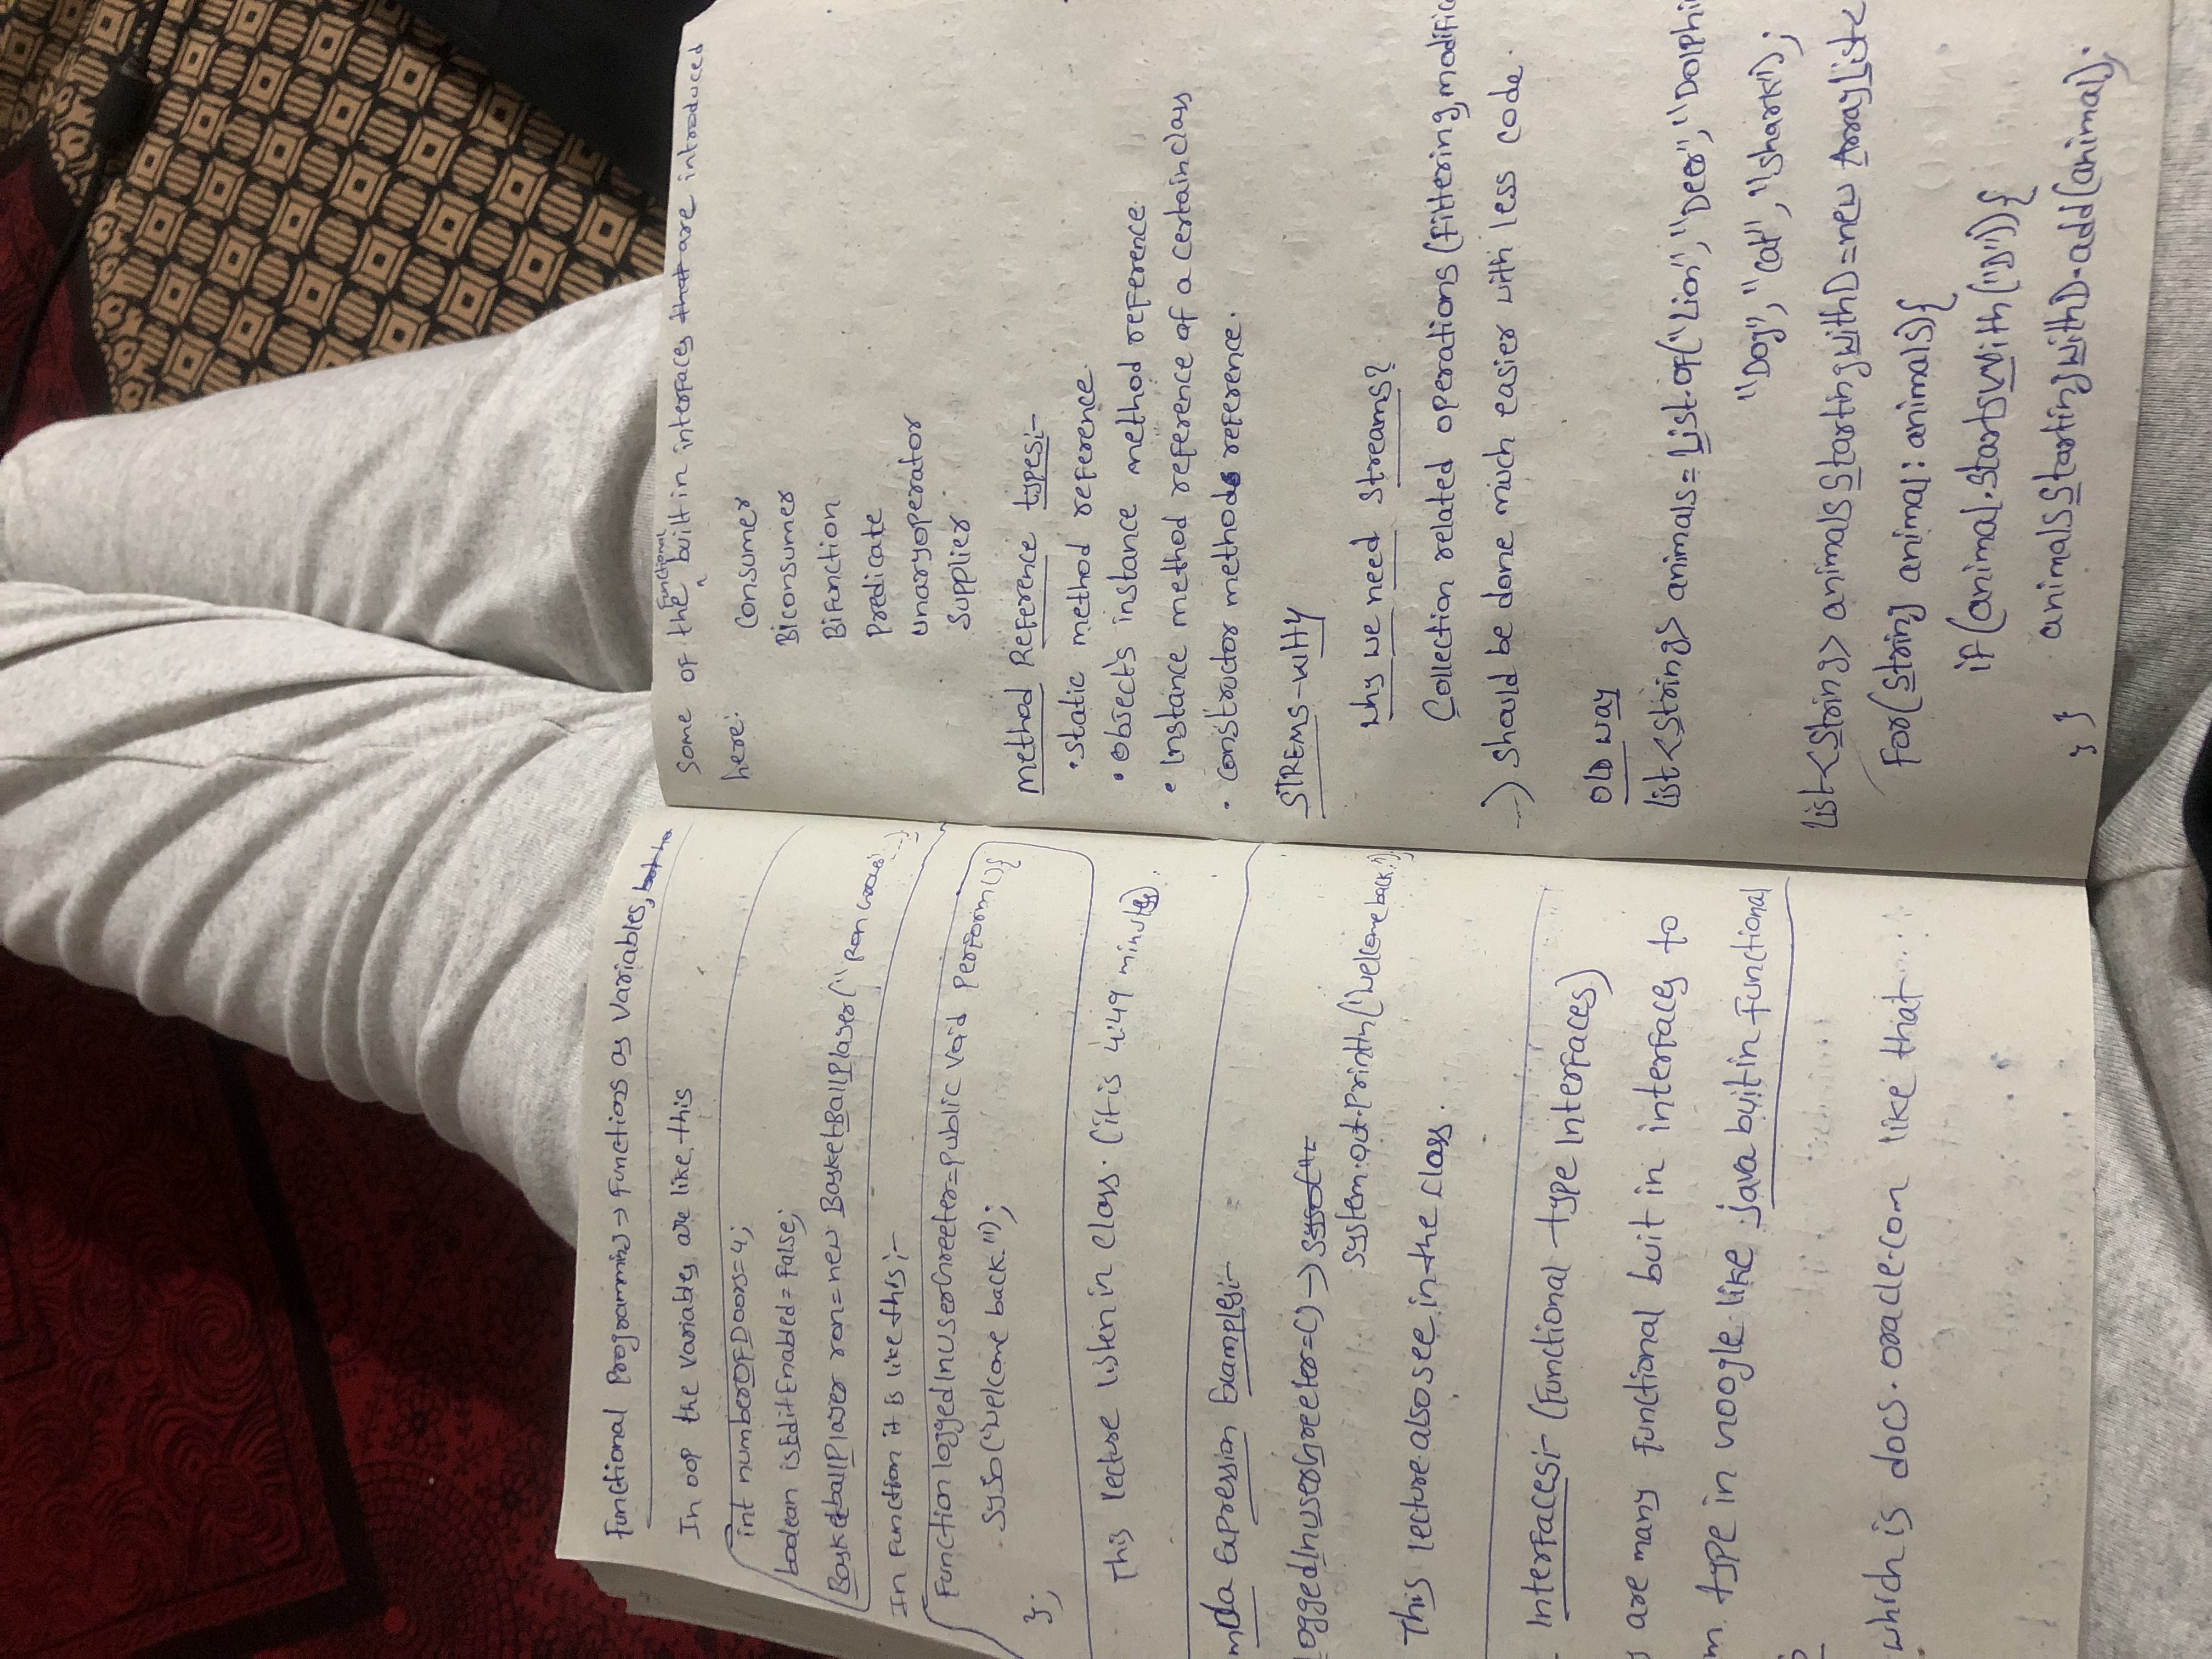 Functional Programming → Functions as Variables, but ho
In OOP the variables are like this
int numberOfDoors=4;
boolean isEditEnabled = False;
BasketballPlayer ron=new BasketBallPlayer("Ron
In Function it is like this :-
Function loggedInUserGreeter=Public Void Perform(){
syso("Welcome back.");
};
This lecture listen in class. (it is 4:49 minutes).
mbda Expression Examples:-
loggedInUserGreeter=() →
System.out.println("Welcome back.")
This lecture also see in the class.
Interfaces:- (Functional type Interfaces)
are many functional buit in interfaces to
m. type in Google like java buitin functional
which is docs.oracle.com like that
Some of the Functional built in interfaces that are introduced
here:
Consumer
Biconsumer
BiFunction
Predicate
unaryoperator
Supplier
Method Reference types:-
• Static method reference.
• Object's instance method reference.
• Instance method reference of a certain class
• Constructor methods reference.
STREMS-WHY
Why we need Streams?
Collection related operations (filttering, modific
...) should be done much easier with less code.
OLD way
List<Strings> animals = List.of("Lion", "Deer", "Dolphi
"Dog", "Cat", "Shark");
List<String> animalsStartingWithD=new ArrayList<
For(String animal : animals){
if(animal.startsWith("D")){
animalsStartingWithD.add(animal);
} }